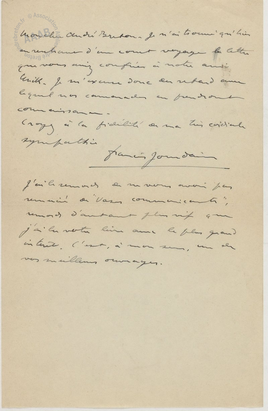 Mon cher André Breton. Je n'ai trouvé qu'hier
en rentrant d'un court voyage la lettre
que vous aviez confiée à notre ami
Je m'excuse donc du retard avec
lequel nos camarades en prendront
connaissance.
Croyez à la fidélité de ma très cordiale
sympathie
Francis Jourdain
J'ai le remords de ne vous avoir pas
remercié des Vases communicants,
remords d'autant plus vif que
j'ai lu votre livre avec le plus grand
intérêt. C'est, à mon sens, un de
vos meilleurs ouvrages.